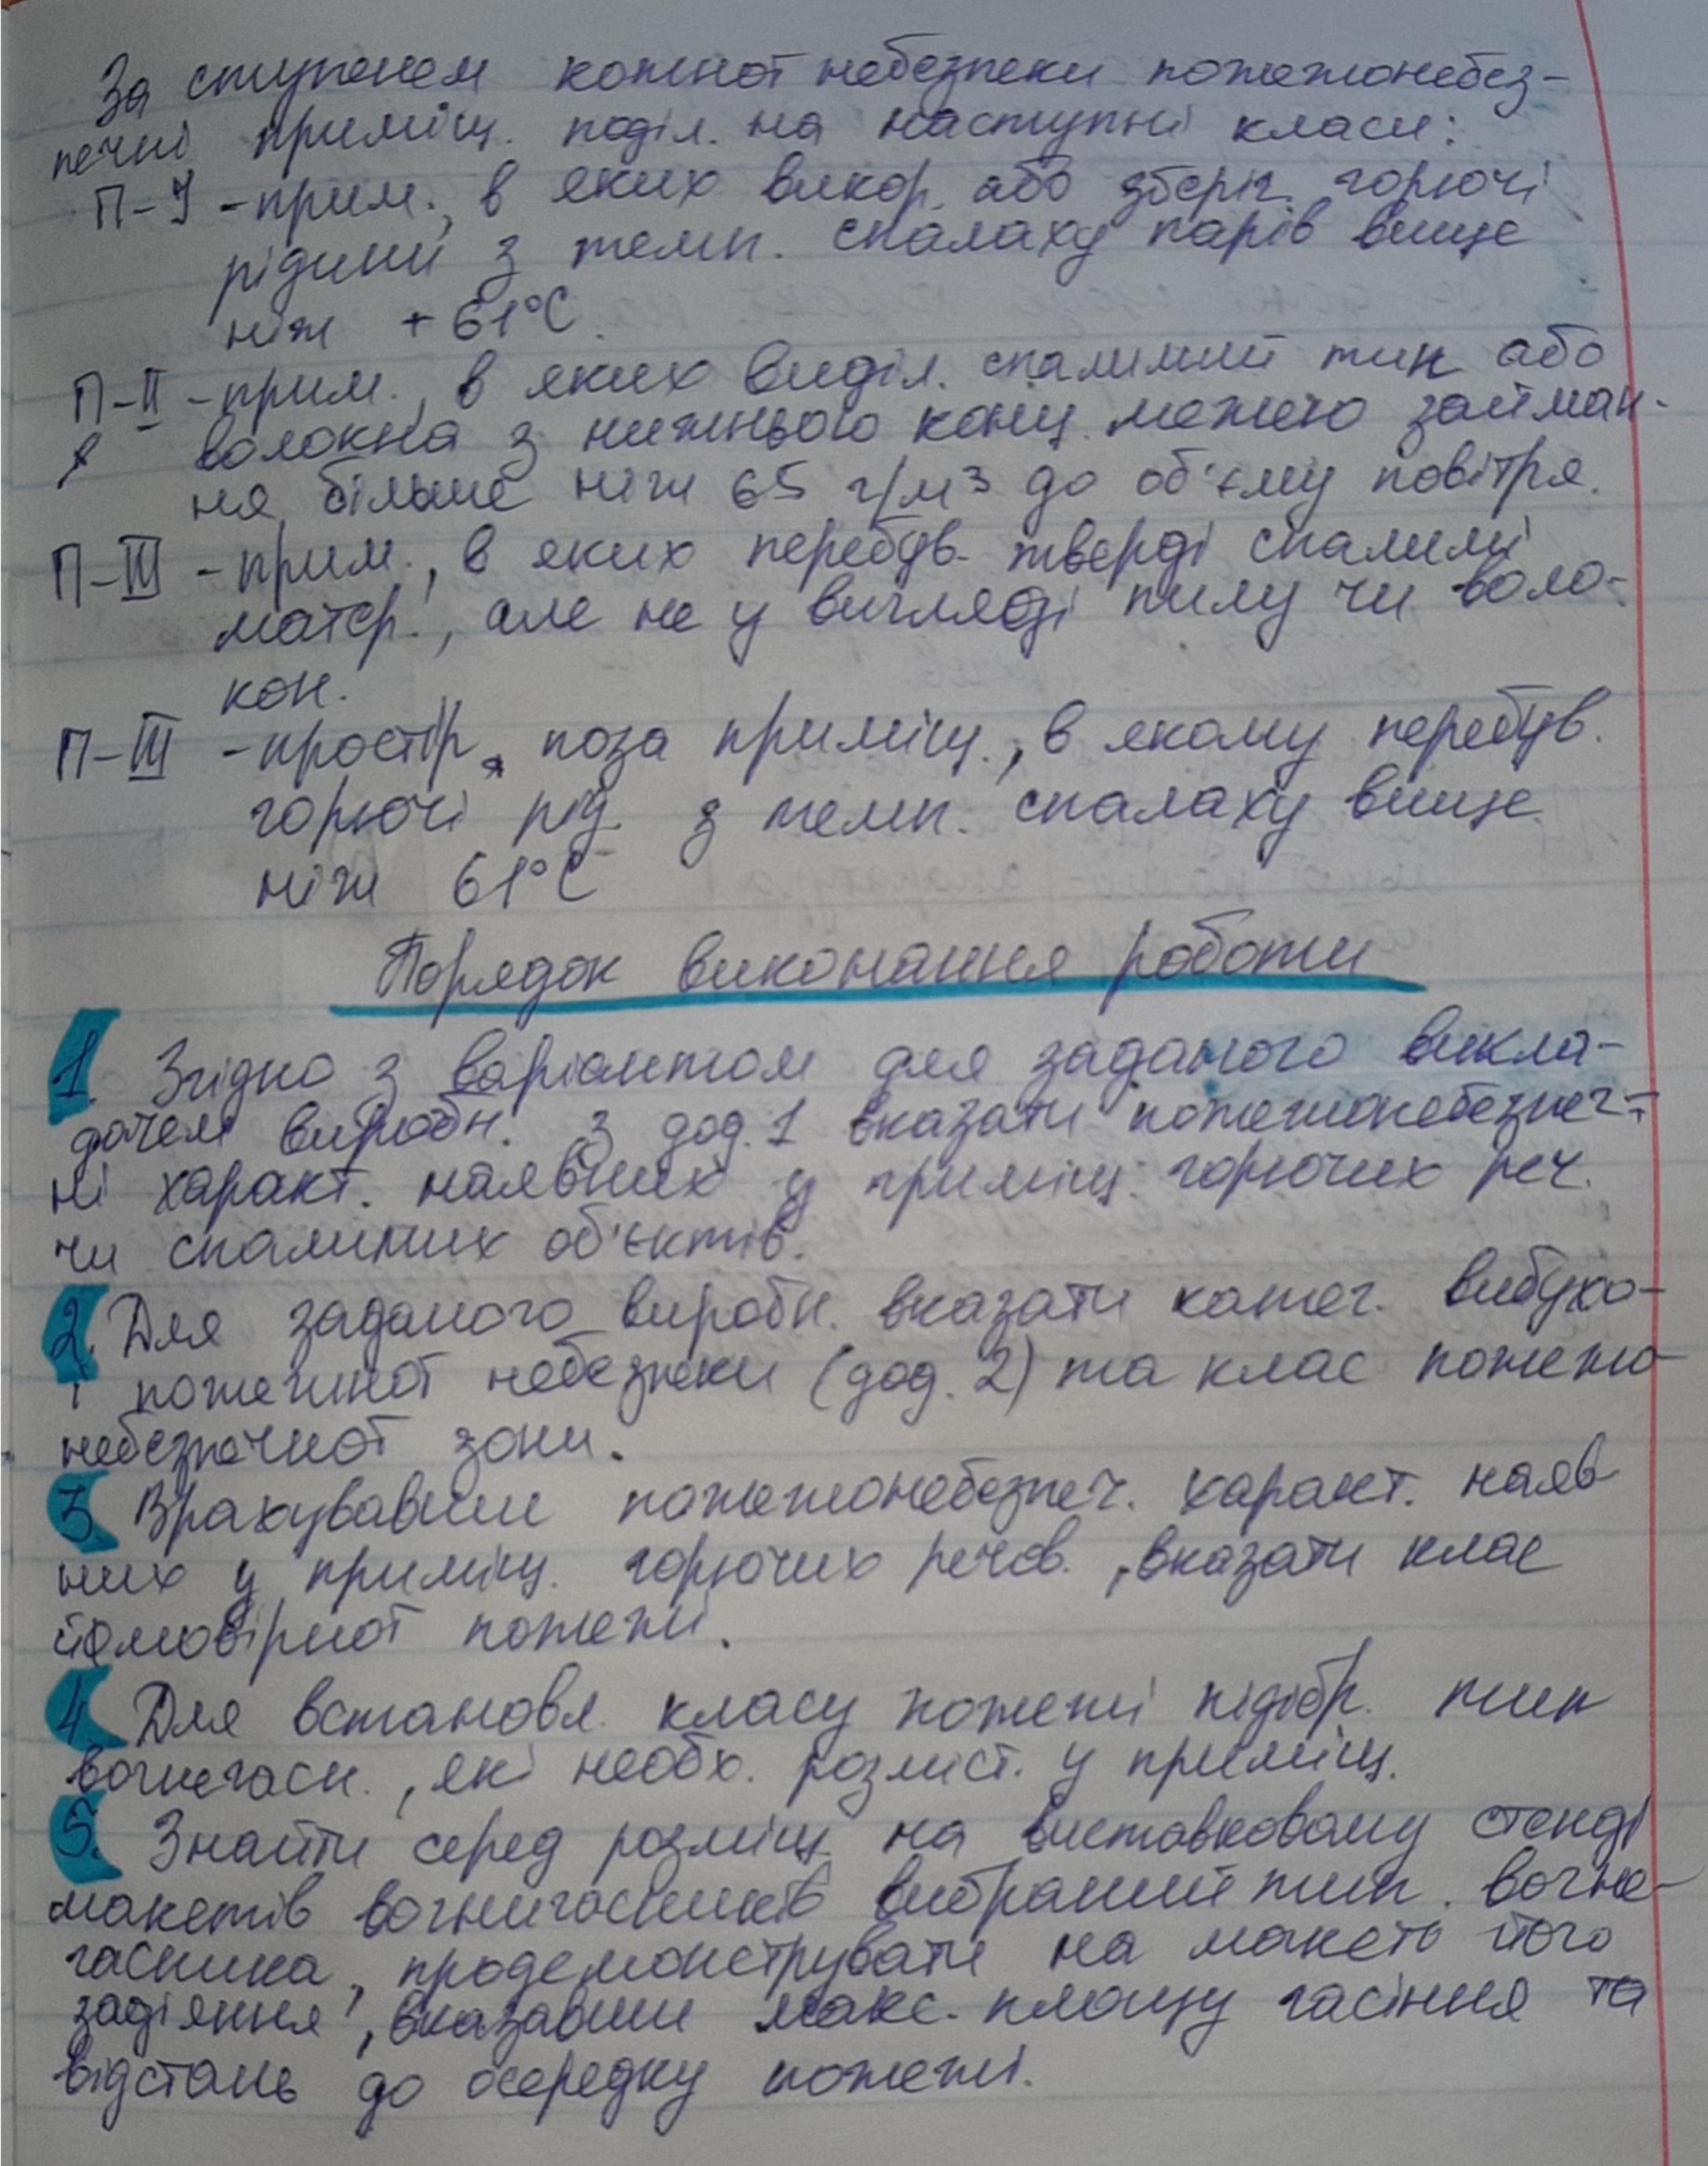 За ступенем кожної небезпеки пожежонебез-
печні приміщ. поділ. на наступні класи:
П-I - прим., в яких викор. або зберіг. горючі
рідини з темп. спалаху парів вище
ніж +61°С.
П-II - прим., в яких виділ. спалимий пил або
волокна з нижнього конц. межею займан-
ня більше ніж 65 г/м3 до об'єму повітря.
П-III - прим., в яких перебув. тверді спалимі
матер., але не у вигляді пилу чи воло-
кон.
П-III - простір поза приміщ., в якому перебув.
горючі рід. з темп. спалаху вище
ніж 61°С
Порядок виконання роботи
1. Згідно з варіантом для заданого викла-
дачем виробн. з дод. 1 вказати пожежонебезпеч-
ні характ. наявних у приміщ. горючих реч.
чи спалимих об'єктів.
2. Для заданого виробн. вказати катег. вибухо-
і пожежної небезпеки (дод. 2) та клас пожежо-
небезпечної зони.
3. Врахувавши пожежонебезпеч. характ. наяв-
них у приміщ. горючих речов., вказати клас
ймовірної пожежі.
4. Для встановл. класу пожежі підібр. тип
вогнегасн., які необх. розміст. у приміщ.
5. Знайти серед розміщ на виставковому стенді
макетів вогнигасників вибраний тип. вогне-
гасника, продемонструвати на макеті його
задіяння, вказавши макс. площу гасіння та
відстань до осередку пожежі.